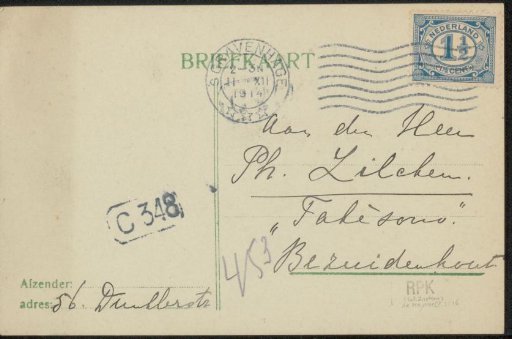 BRIEFKAART
'S GRAVENHAGE
11 XII
1914
NEDERLAND
1½
CENT
Aan den Heer
Ph. Zilcken.
„Fabésono".
Bezuidenhout
C 348
453
Afzender:
adres: 56. Dunklerstr
RPK